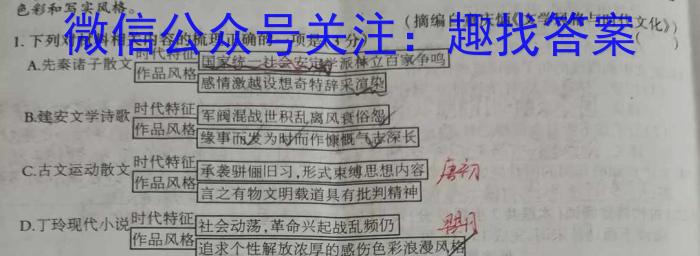 色彩和写实风格。
(摘编自
文化》)
微信公众号关注：趣找答案
1.下列对
A.先秦诸子散文 时代特征 国家统一社会安定学派林立百家争鸣
作品风格 感情激越设想奇特辞采渲染
B.建安文学诗歌 时代特征 军阀混战世积乱离风衰俗怨
作品风格 缘事而发为时而作慷慨气志深长
C.古文运动散文 时代特征 承袭骈俪旧习,形式束缚思想内容 唐初
作品风格 言之有物文明载道具有批判精神
D.丁玲现代小说 时代特征 社会动荡,革命兴起战乱频仍
作品风格 追求个性解放浓厚的感伤色彩浪漫风格